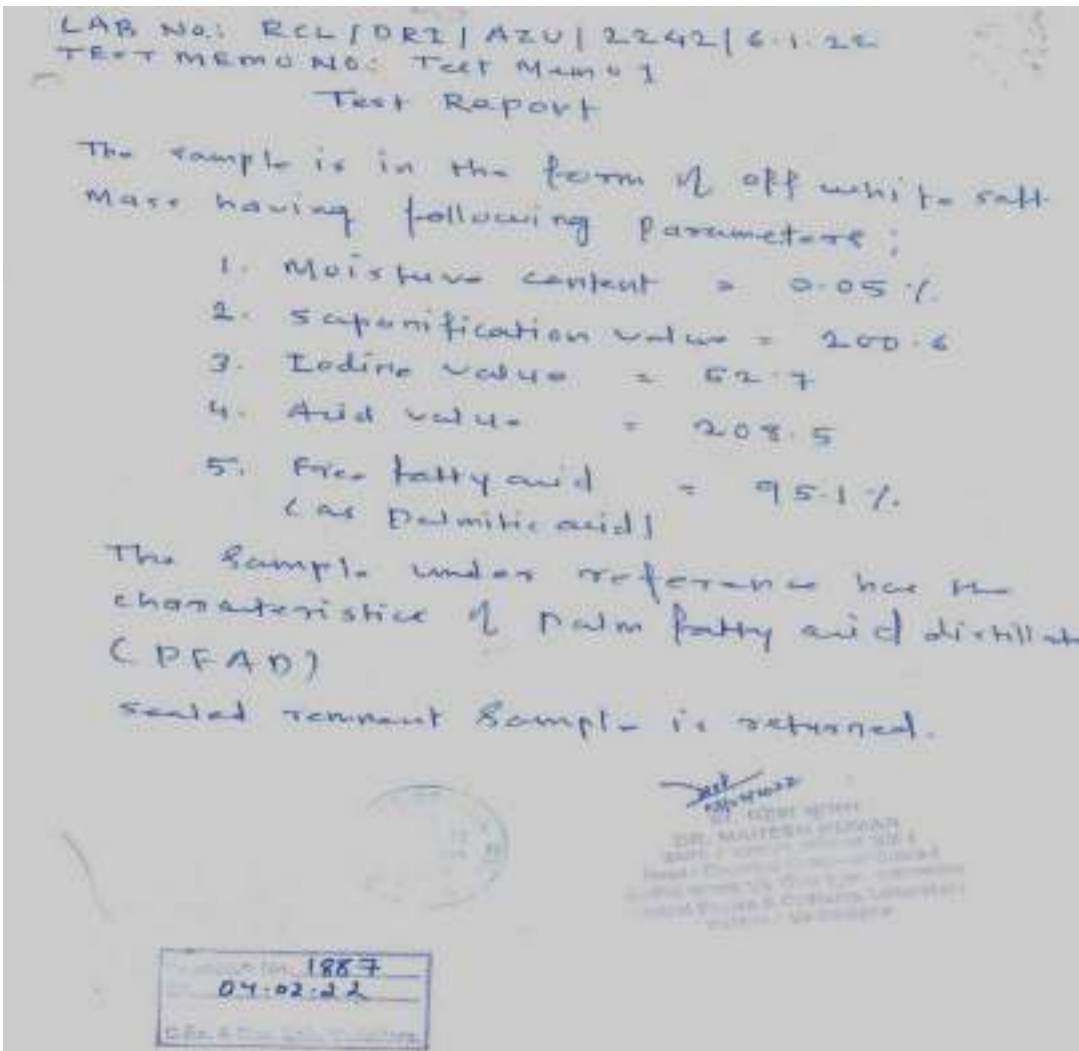 LAB No.: RCL/DRI/AZU/2242/6.1.22
TEST MEMO NO: Test Memo 1
Test Report
The sample is in the form of off white soft
Mass having following parameters:
1. Moisture content = 0.05 %.
2. Saponification value = 200.6
3. Iodine value = 52.7
4. Acid value = 208.5
5. Free fatty acid = 95.1 %.
(as Palmitic acid)
The Sample under reference has the
characteristics of Palm fatty acid distillate
(PFAD)
Sealed remnant Sample is returned.
DR. MAHESH KUMAR
1887
04.02.22